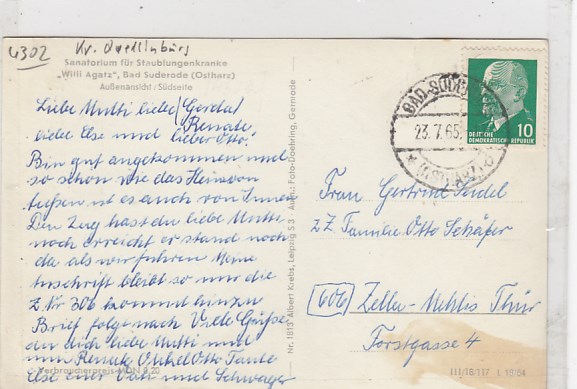 4302 Kr. Quedlinburg
Sanatorium für Staublungenkranke
"Willi Agatz", Bad Suderode (Ostharz)
Außenansicht: Südseite
Liebe Mutti liebe Gerda
liebe Else und Renate
lieber Otto!
Bin gut angekommen und
so schön wie das Heim von
Außen ist es auch von Innen
Den Zug hast du liebe Mutti
noch erreicht er stand noch
da als wir fuhren Meine
Anschrift bleibt so nur die
Z. Nr 306 kommt hinzu
Brief folge nach Viele Grüße
an dich liebe Mutti und
Renate Onkel Otto Tante
Else euer Vati und Schwager
Verbraucherpreis MDN 0,20
Nr. 1813 Albert Krebs, Leipzig S 3 Aufn.: Foto-Doehring, Gernrode
BAD SUDERODE
23.7.65
(OSTHARZ)
DEUTSCHE
DEMOKRATISCHE REPUBLIK
10
Frau Gertrud Seidel
z Z Familie Otto Schäfer
(606) Zella-Mehlis Thür
Forstgasse 4
III/18/117 L 18/64